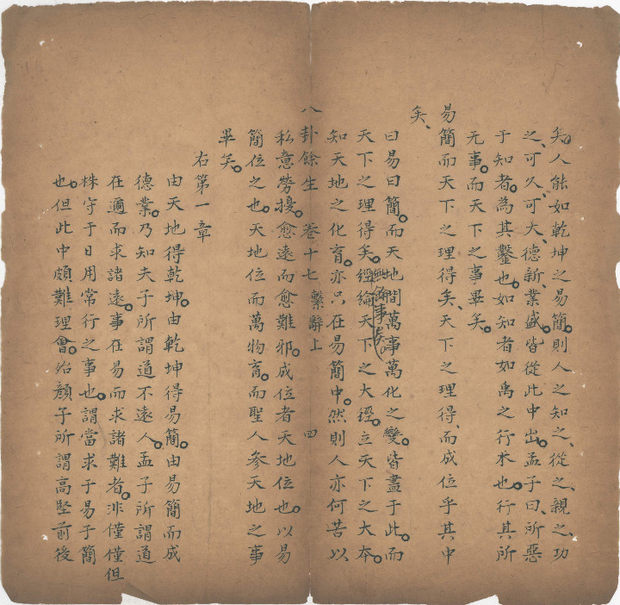 矣人能如乾坤之易簡。則人之知之、從之、親之、功
之、可久、可大、德新、業盛。皆從此中出。孟子曰、所惡
于知者。為其鑿也。如知者如禹之行水也。行其所
无事。而天下之事畢矣。
易簡而天下之理得矣、天下之理得、而成位乎其中
矣、
曰易曰簡。而天地間萬事萬化之變。皆盡于此。而
天下之理得矣。經綸天下之大經。立天下之大本。
知天地之化育。亦只在易簡中。然則人亦何苦以
八卦餘生 卷十七 繫辭上 四
私意勞擾。愈遠而愈難邪。成位者天地位也。以易
簡位之也。天地位而萬物育。而聖人參天地之事
畢矣。
右第一章
由天地得乾坤。由乾坤得易簡。由易簡而成
德業。乃知夫子所謂道不遠人。孟子所謂道
在邇而求諸遠。事在易而求諸難者。非僅僅但
株守于日用常行之事也。謂當求于易于簡
也。但此中頗難理會。殆顏子所謂高堅前後